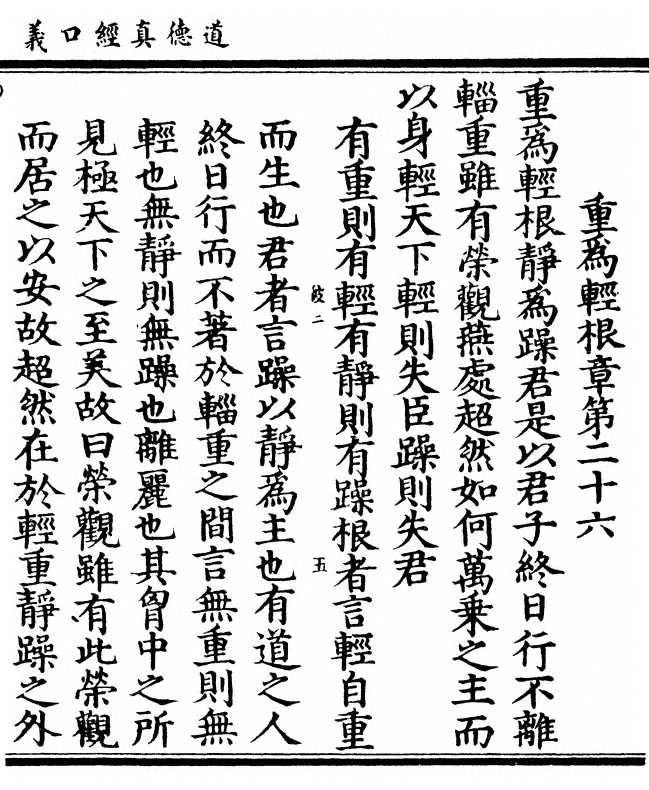 道德真經口義
重為輕根章第二十六
重為輕根靜為躁君是以君子終日行不離
輜重雖有榮觀燕處超然如何萬乘之主而
以身輕天下輕則失臣躁則失君
有重則有輕有靜則有躁根者言輕自重
彼二
五
而生也君者言躁以靜為主也有道之人
終日行而不著於輜重之間言無重則無
輕也無靜則無躁也離麗也其胷中之所
見極天下之至美故曰榮觀雖有此榮觀
而居之以安故超然在於輕重靜躁之外